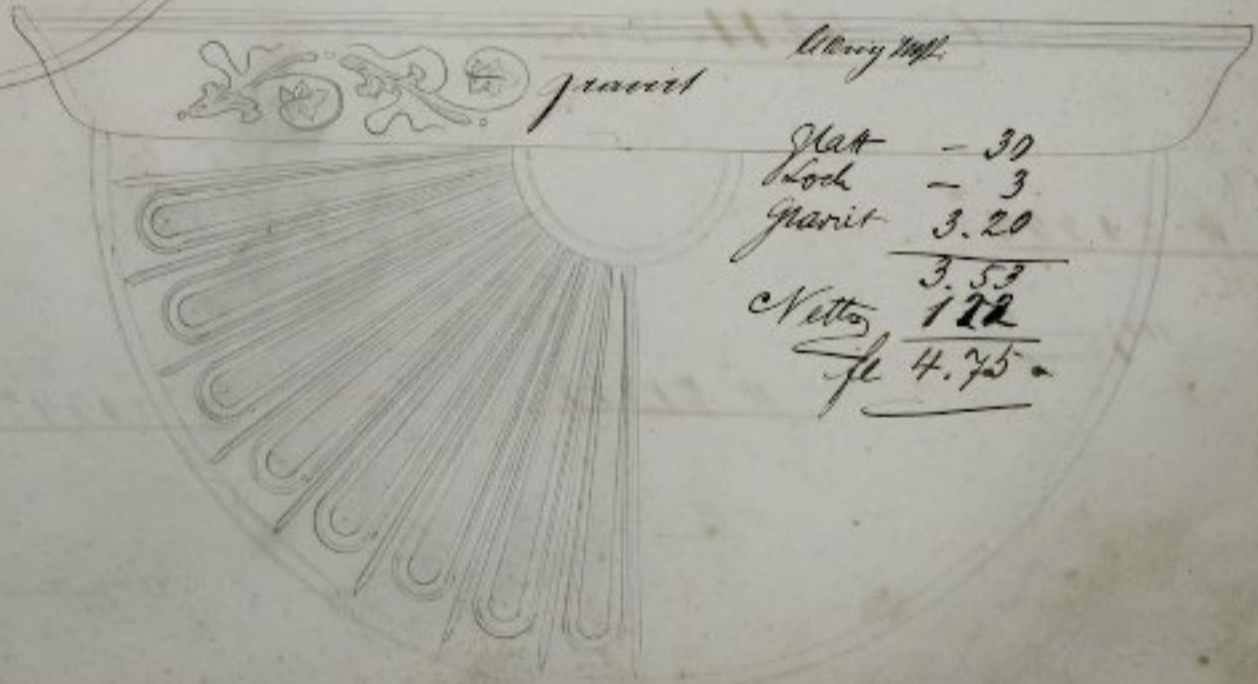 gravirt
Glatt - 30
Loch - 3
Gravirt 3.20
3.53
Netto 122
fl 4.75